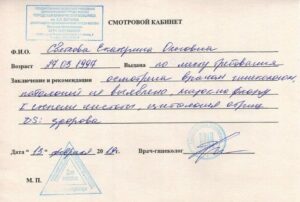 СМОТРОВОЙ КАБИНЕТ
Ф.И.О. Светова Екатерина Олеговна
Возраст 19.03.1997 Выдана по месту требования
Заключение и рекомендации осмотрена врачом гинекологом,
патологий не выявлено, мазок на флору
I степени чистоты, цитология
DS: здорова
Дата « 13 » февраля 20 г. Врач-гинеколог
М. П.